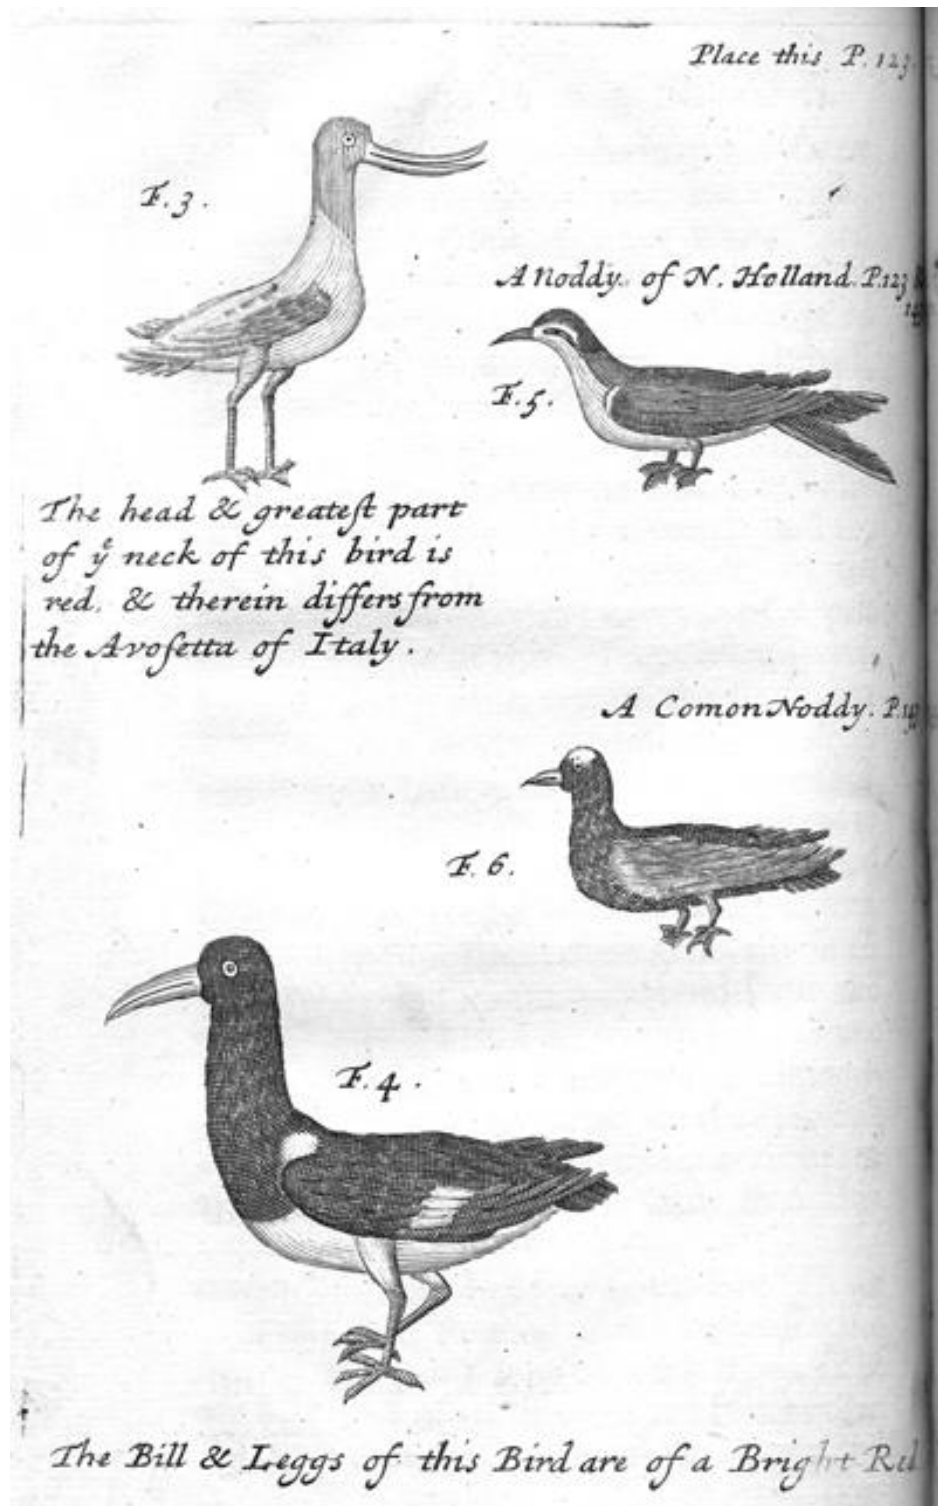 Place this P. 123.
F. 3.
A Noddy of N. Holland. P. 123 &
F. 5.
The head & greateſt part
of yͤ neck of this bird is
red, & therein differs from
the Avoſetta of Italy.
A Comon Noddy. P.
F. 6.
F. 4.
The Bill & Leggs of this Bird are of a Bright Red